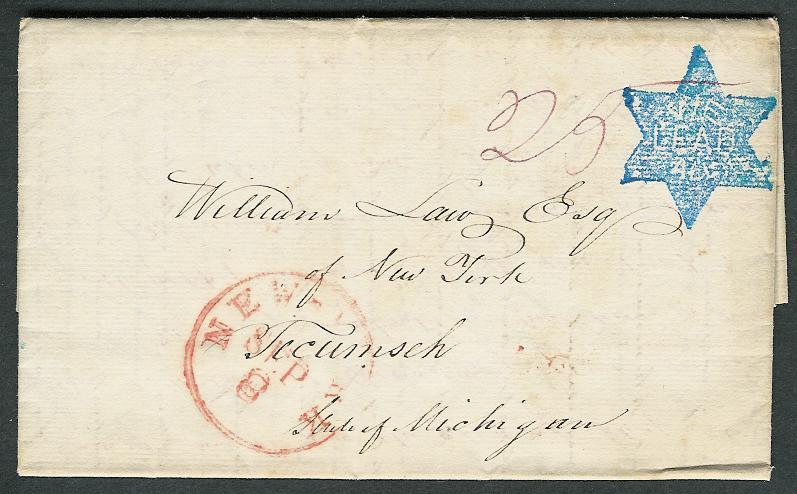 25
LEAD
William Law Esq
of New York
Tecumseh
State of Michigan
NEW
SEP
8